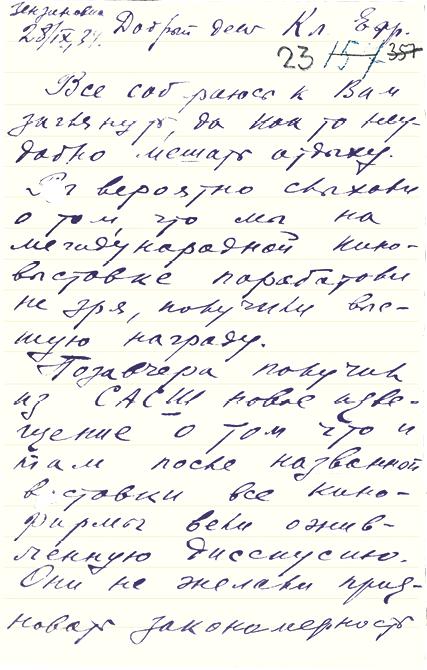 Зензиновка
28/IX, 34. Добрый день Кл. Ефр.
23 157 357
Все собираюсь к Вам
заглянуть, да как то неу-
добно мешать отдыху.
вероятно слыхали
о том, что мы на
международной кино-
выставке поработали
не зря, получили выс-
шую награду.
Позавчера получил
из САСШ новое изве-
щение о том что и
там после названной
выставки все кино-
фирмы вели ожив-
ленную дисскусию.
Они не желали приз-
новать закономерность